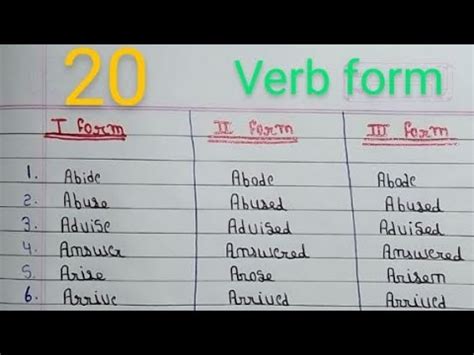 20 Verb form
I form II form III form
1. Abide Abode Abode
2. Abuse Abused Abused
3. Advise Advised Advised
4. Answer Answered Answered
5. Arise Arose Arisen
6. Arrive Arrived Arrived